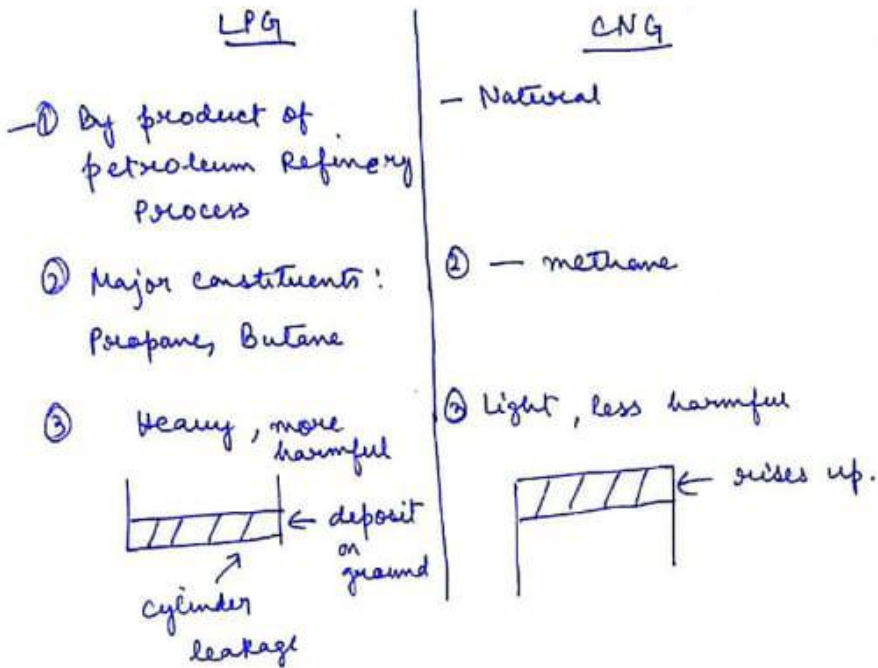 LPG
—① By product of
petroleum Refinery
Process
② Major constituents :
Propane, Butane
③ Heavy, more
harmful
← deposit
on
ground
cylinder
leakage
CNG
— Natural
② — methane
③ Light, less harmful
← rises up.